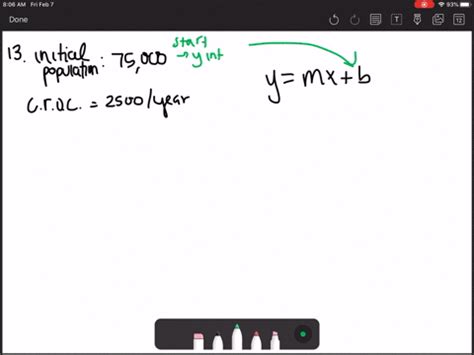 8:06 AM Fri Feb 7
93%
Done
T
13. initial
population: 75,000
start
→ y int
y = mx + b
C.R.O.C. = 2500/year